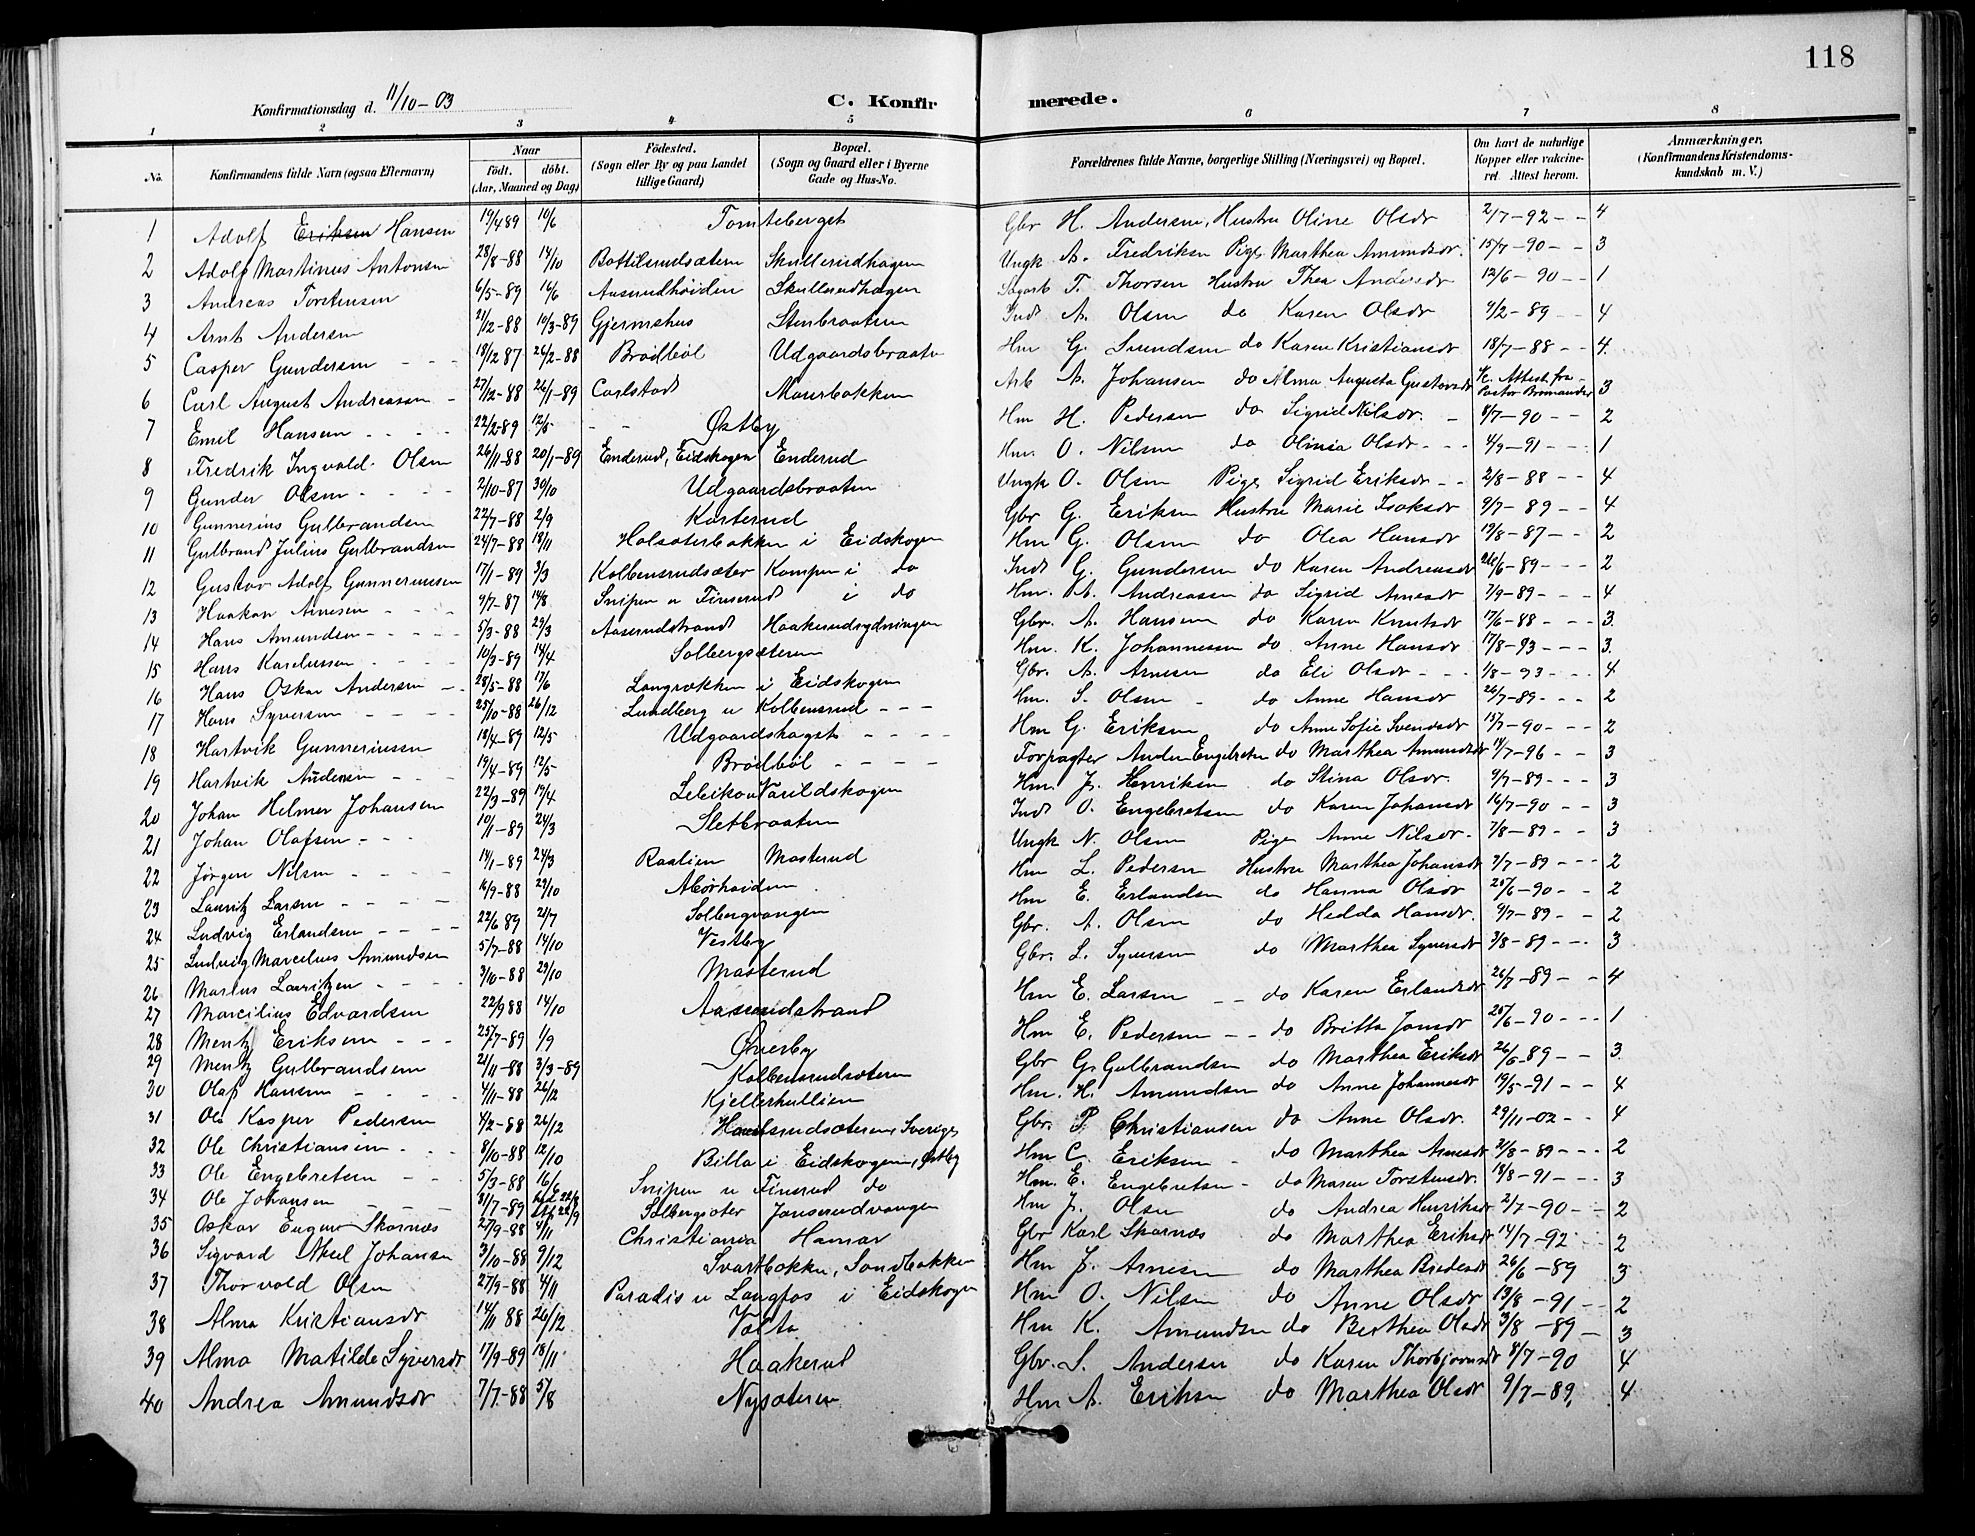 118
Konfirmationsdag d. 11/10-03 C. Konfirmerede.
1 2 3 4 5 6 7 8
No. Konfirmandens fulde Navn (ogsaa Efternavn) Naar födt. döbt. (Aar, Maaned og Dag) Födested. (Sogn eller By og paa Landet tillige Gaard) Bopæl. (Sogn og Gaard eller i Byerne Gade og Hus-No. Forældrenes fulde Navne, borgerlige Stilling (Næringsvei) og Bopæl. Om havt de naturlige Kopper eller vakcineret. Attest herom. Anmærkninger, (Konfirmandens Kristendomskundskab m. V.)
1 Adolf Eriksen Hansen 19/4 89 10/6 Tomteberget Gbr H. Andersen, Hustru Oline Olsdr 2/7-92 - - 4
2 Adolf Martinus Antonsen 28/8-88 14/10 Bottilsrudsætern Skullerudhagen Ungk A. Fredriksen Pige Marthea Amundsdr. 15/7-90 - - 3
3 Andreas Torstensen 6/5-89 16/6 Aasrudhöiden Skullerudhagen T. Thorsen Hustru Thea Andersdr 12/6-90 - - 1
4 Arnt Andersen 21/12-88 10/3-89 Gjermshus Stenbraaten Inds A. Olsen do Karen Olsdr 9/2-89 - - 4
5 Casper Gundersen - - - 19/12 87 26/2-88 Brödböl Udgaardsbraaten Hm G. Svendsen do Karen Kristiansdr 18/7-88 - - 4.
6 Carl August Andreassen - 27/12-88 26/1-89 Carlstad Maurbakken Arb A. Johansen do Alma Augusta Gustavsdr Attest fra Pastor Bromander 3
7 Emil Hansen - - - - 22/2-89 12/5 - - Østby Hm H. Pedersen do Sigrid Nilsdr. - 8/7-90 - - 2
8 Fredrik Ingvald Olsen 26/11-88 20/1-89 Enderud, Eidskogen Enderud Hm. O. Nilsen do Olinia Olsdr - - - 4/9-91 - - - 1
9 Gunder Olsen - - - - 2/10-87 30/10 Udgaardsbraaten Ungk O. Olsen Pige Sigrid Eriksdr - - 2/8-88 - - 4
10 Gunnerius Gulbrandsen 22/7-88 2/9 Kasterud Gbr G. Eriksen Hustru Marie Isaksdr 9/7-89 - - 4
11 Gulbrand Julius Gulbrandsen 24/7-88 18/11 Holsæterbakken i Eidskogen Hm G. Olsen do Olea Hansdr 19/8-87 - - 2
12 Gustav Adolf Gunneriussen 17/1-89 3/3 Kolbensrudsæter Kampen i do Inds G. Gundersen do Karen Andreasdr 26/6-89 - - - 2
13 Haakon Arnesen - - - 9/7-87 14/8 Snipen u Finserud i do Hm. A. Andreassen do Sigrid Arnesdr 7/9-89 - - - 4
14 Hans Amundsen - - - - - 5/3-88 29/3 Aasrudstrand Haakerudsrydningen Gbr. A. Hansen do Karen Knutsdr 17/6-88 - - - 3.
15 Hans Kareliussen - - - - 10/3-89 14/4 Solbergsætern Hm. K. Johannessen do Anne Hansdr 17/8-93 - - - 3.
16 Hans Oskar Andersen - - 28/5-88 17/6 Langrækken i Eidskogen Gbr. A. Arnesen do Eli Olsdr - - - 1/8-93 - - - 4
17 Hans Syversen - - - - 25/10-88 26/12 Lundberg u Kolbensrud - - - Hm. S. Olsen - do Anne Hansdr 26/7-89 - - - 2
18 Hartvik Gunneriussen 18/4-89 12/5 Udgaardshaget - - - - Hm G. Eriksen do Anne Sofie Svendsdr 15/7-90 - - - 2
19 Hartvik Andersen - - - 19/4-89 12/5 Brödböl - - - - Forpagter Anders Engebretsen do Marthea Amundsdr 14/7-96 - - 3
20 Johan Helmer Johansen 22/3-89 19/4 Varildskogen Hm. J. Henriksen do Stina Olsdr. 9/7-89 - - - 3
21 Johan Olafsen - - - 10/1-89 24/3 Sletbraaten Inds O. Engebretsen do Karen Johansdr 16/7-90 - - - 3
22 Jørgen Nilsen - - - - 14/1-89 24/3 Raalien Masterud Ungk N. Olsen Pige Anne Nilsdr - 7/8-89 - - 3
23 Lauritz Larsen - - - - 16/9-88 29/10 Hm L. Pedersen Hustru Marthea Johansdr 7/7-89 - - - 2
24 Ludvig Erlandsen - - - - 22/6 89 21/7 Solbergvangen Hm E. Erlandsen do Hanna Olsdr 25/6-90 - - 2
25 Ludvig Marcelius Amundsen 5/7-88 14/10 Vestby Gbr. A. Olsen do Hedda Hansdr. 9/7-89 - - 2
26 Marius Lauritzen - - - - 3/10-88 29/10 Masterud Gbr. L. Syversen do Marthea Syversdr 3/8-89 - - - 3
27 Marcilius Edvardsen 22/9 88 14/10 Aasrudstrand Hm E. Larsen - - do Karen Erlandsdr 26/7-89 - - 4
28 Mentz Eriksen - - - 25/7-89 1/9 Øverby Hm E. Pedersen - - do Britta Jonsdr 25/6-90 - - - 1
29 Mentz Gulbrandsen 21/11-88 3/3-89 Kolbensrudsætern Gbr G. Gulbrandsen do Marthea Eriksdr 26/6-89 - - 3
30 Olaf Hansen - - - - 4/11-88 26/12 Kjellerhullien Hm. H. Amundsen do Anne Johannesdr 19/5-91 - - 4
31 Ole Kasper Pedersen 4/2-88 26/12 Sverige Gbr. P. Christiansen do Anne Olsdr. 29/11-02 - - 4
32 Ole Christiansen - - - 8/10-88 12/10 Billa i Eidskogen, Østby Hm C. Eriksen - do Marthea Arnesdr 21/8-89 - - - 2
33 Ole Engebretsen - - 5/3-88 16/6 Snipen u Finserud do Hm. E. Engebretsen - do Maren Torstensdr. 18/8-91 - - - 3
34 Ole Johansen - - - 8/7-89 Solbergsæter Jonserudvangen Hm J. Olsen do Andrea Henriksdr 2/7-90 - - 2
35 Oskar Eugen Skarnæs 27/9-88 4/11 Christiania Hamar Gbr Karl Skarnæs do Marthea Eriksdr 14/7-92 2
36 Sigvard Aksel Johansen 3/10-88 9/12 Svartbakken, Sandbakken Hm J. Arnesen do Marthea Bredesdr 26/6-89 3
37 Thorvald Olsen 27/9-88 4/11 Paradis u Langfos i Eidskogen Hm O. Nilsen do Anne Olsdr 13/8-91 - - 2
38 Alma Kristiansdr 14/11 88 26/12 Valta Hm K. Amundsen do Berthea Olsdr 3/8-89 - 3
39 Alma Matilde Syversdr 17/9-89 18/11 Haakerud Gbr. S. Andersen do Karen Thorbjørnsdr 8/7-90 4
40 Andrea Amundsdr 7/7-88 5/8 Nysæteren Hm A. Eriksen do Marthea Olsdr 9/7-89, 4